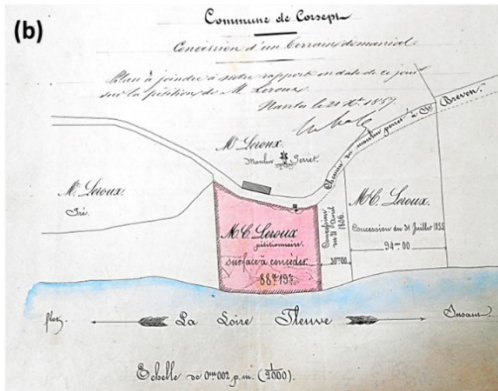 (b)
Commune de Corsept
Concession d'un terrain domanial
Plan à joindre à notre rapport en date de ce jour
sur la pétition de M. Leroux
Nantes le 21 Xbre 1857
Mr. Leroux.
Moulin Perret.
Chemin du moulin perret à St. Brevin.
Mr. Leroux.
Pré.
Mr. C. Leroux
pétitionnaire
surface à concéder
88a 19c
Concession du 21 Avril 1856.
20m00
Mr. C. Leroux.
Concession du 31 Juillet 1855
94m00
flot
La Loire Fleuve
Jusant
Echelle de 0m002 p.m.